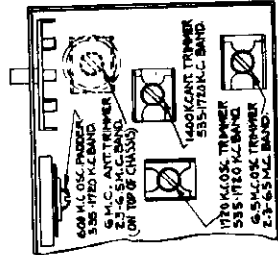 600 K.C. OSC. PADDER
535-1720 K.C. BAND.
6 M.C. ANT. TRIMMER
2.3-6.5 M.C. BAND.
(ON TOP OF CHASSIS)
1400 K.C. ANT. TRIMMER
535-1720 K.C. BAND.
1720 K.C. OSC. TRIMMER
535-1720 K.C. BAND.
6.5 M.C. OSC. TRIMMER
2.3-6.5 M.C. BAND.